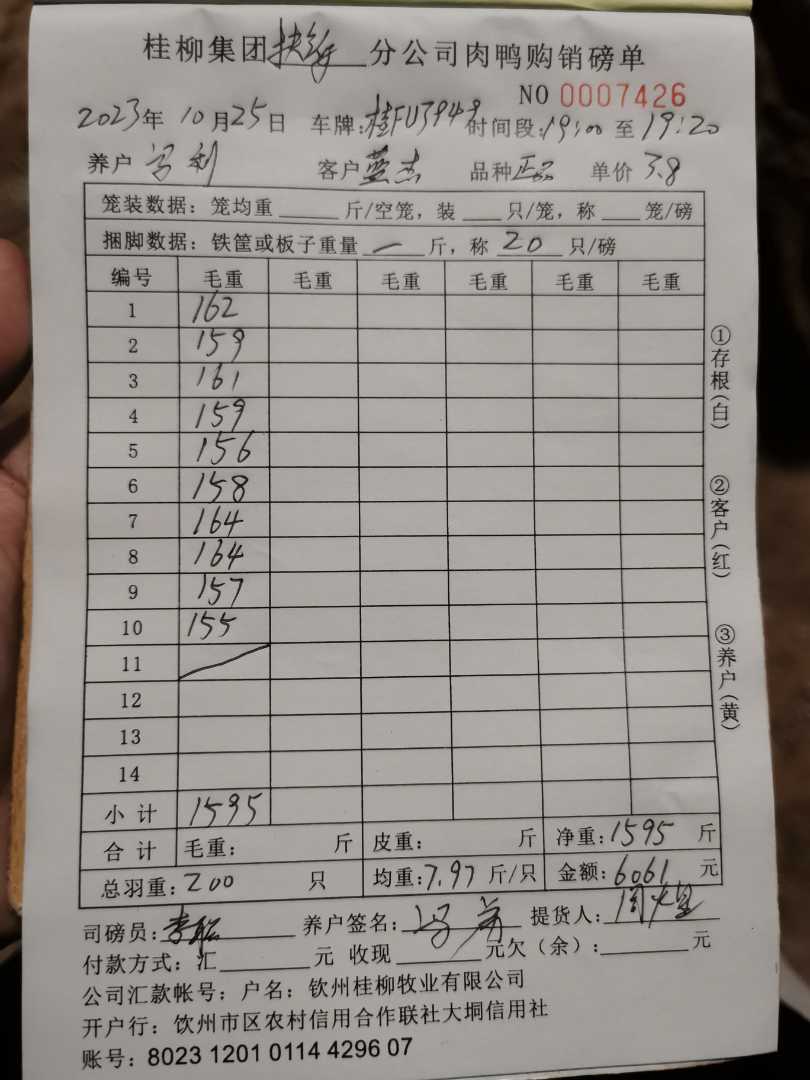 桂柳集团扶绥分公司肉鸭购销磅单
NO 0007426
2023年 10月25日 车牌:桂FU3948 时间段:19:00 至 19:20
养户 冯利 客户 蓝杰 品种 正品 单价 3.8
笼装数据：笼均重 斤/空笼，装 只/笼，称 笼/磅
捆脚数据：铁筐或板子重量 一 斤，称 20 只/磅
编号 毛重 毛重 毛重 毛重 毛重 毛重
1 162
2 159
3 161
4 159
5 156
6 158
7 164
8 164
9 157
10 155
11
12
13
14
小计 1595
合计 毛重： 斤 皮重： 斤 净重：1595 斤
总羽重：200 只 均重：7.97 斤/只 金额：6061 元
司磅员: 养户签名: 冯 提货人:
付款方式：汇 元 收现 元欠（余）： 元
公司汇款帐号：户名：钦州桂柳牧业有限公司
开户行：饮州市区农村信用合作联社大垌信用社
账号：8023 1201 0114 4296 07
①存根(白)
②客户(红)
③养户(黄)